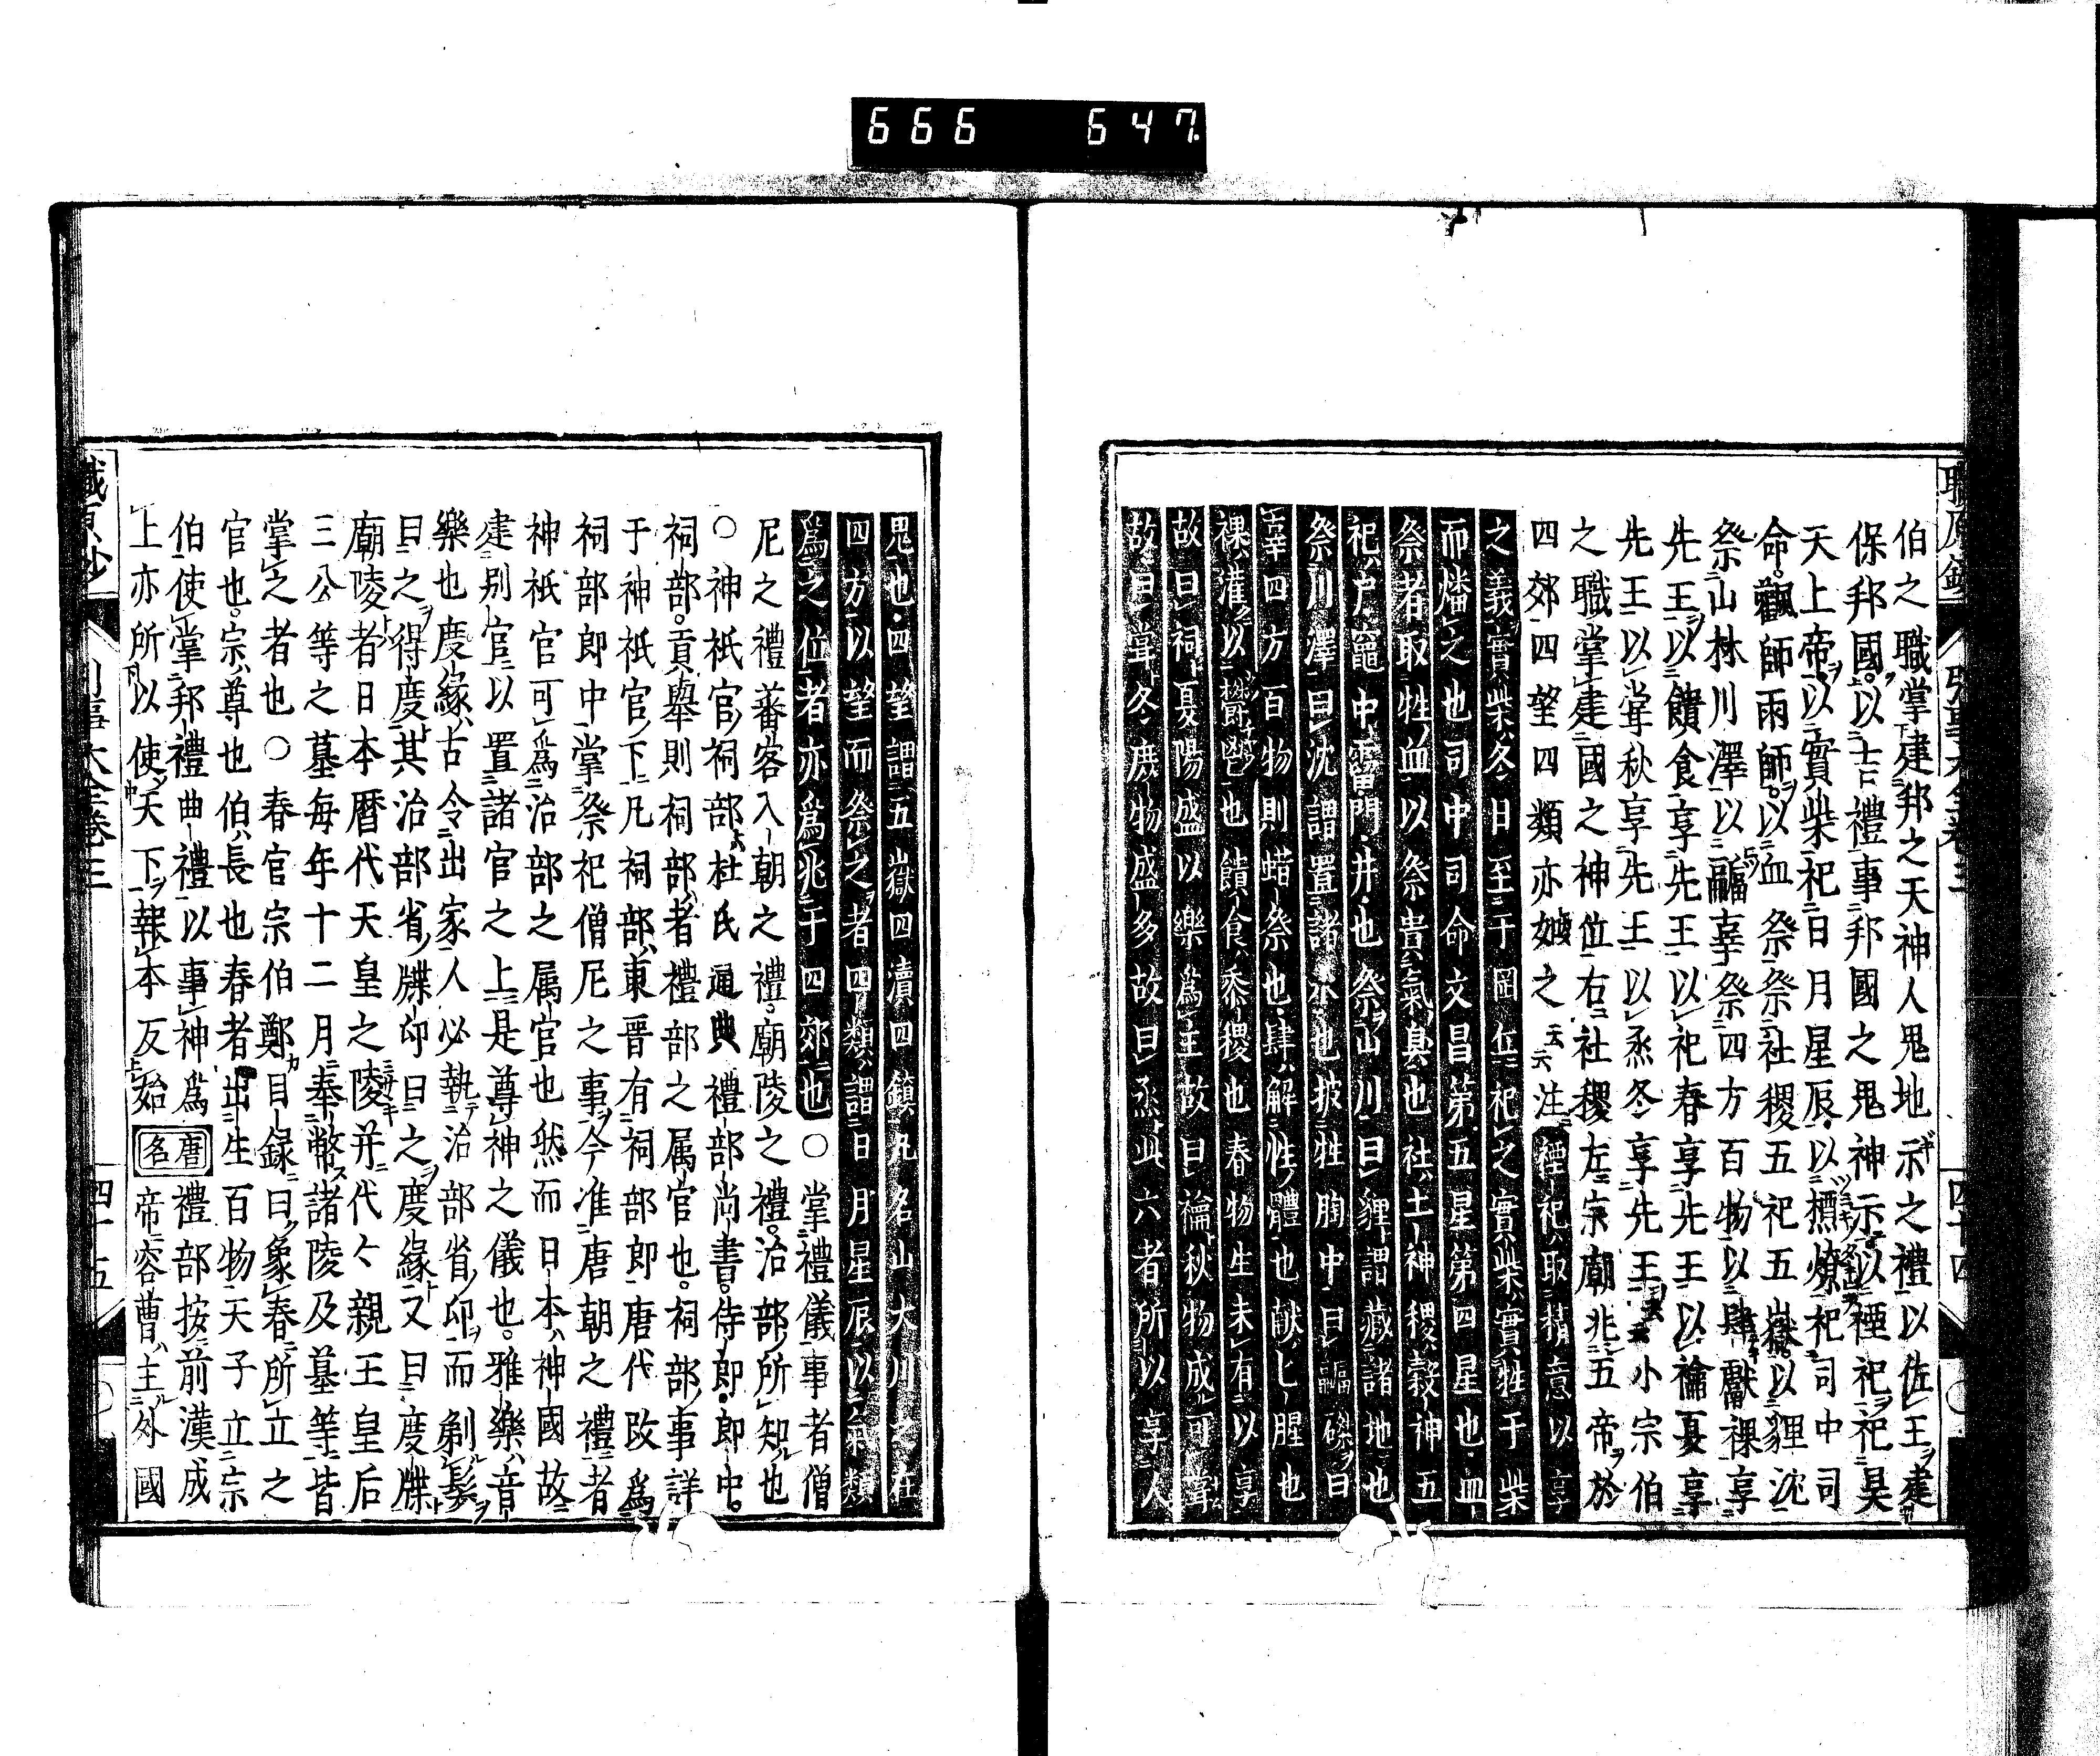 666 647.
伯之職掌建邦之天神人鬼地示之禮以佐王建
保邦國以吉禮事邦國之鬼神示以禋祀祀昊
天上帝以實柴祀日月星辰以槱燎祀司中司
命飌師雨師以血祭祭社稷五祀五嶽以貍沈
祭山林川澤以疈辜祭四方百物以肆獻祼享
先王以饋食享先王以祀春享先王以禴夏享
先王以甞秋享先王以烝冬享先王 小宗伯
之職掌建國之神位右社稷左宗廟兆五帝於
四郊四望四類亦如之云云注禋祀取精意以享
之義實柴冬日至于圜丘祀之實柴實牲于柴
而燔之也司中司命文昌第五星第四星也血
祭者取牲血以祭貴氣臭也社土神稷穀神五
祀戶竈中霤門井也祭山川曰貍謂藏諸地也
祭川澤曰沈謂置諸水也披牲胸中曰疈磔曰
辜四方百物則蜡祭也肆解牲體也献匕腥也
祼灌以欝鬯也饋食黍稷也春物生未有以享
故曰祠夏陽盛以樂為主故曰禴秋物成可甞
故曰甞冬庶物盛多故曰烝此六者所以享人
鬼也四望謂五嶽四瀆四鎮凡名山大川之在
四方以望而祭之者四類謂日月星辰以氣類
為之位者亦為兆于四郊也○掌禮儀事者僧
尼之禮蕃客入朝之禮廟陵之禮治部所知也
○神祇官祠部杜氏通典禮部尚書侍郎郎中
祠部貢舉則祠部者禮部之属官也祠部事詳
于神祇官下凡祠部東晋有祠部郎唐代改為
祠部郎中掌祭祀僧尼之事今准唐朝之禮者
神祇官可為治部之属官也然而日本神國故
建别官以置諸官之上是尊神之儀也雅樂音
樂也度緣古令出家人必執治部省印而剃髪
曰之得度其治部省牒印曰之度緣又曰度牒
廟陵者日本暦代天皇之陵并代々親王皇后
三公等之墓每年十二月奉幣諸陵及墓等皆
掌之者也○春官宗伯鄭目録曰象春所立之
官也宗尊也伯長也春者出生百物天子立宗
伯使掌邦禮曲禮以事神為
上亦所以使天下報本反始
唐名
禮部按前漢成
帝容曹主外國
四十五